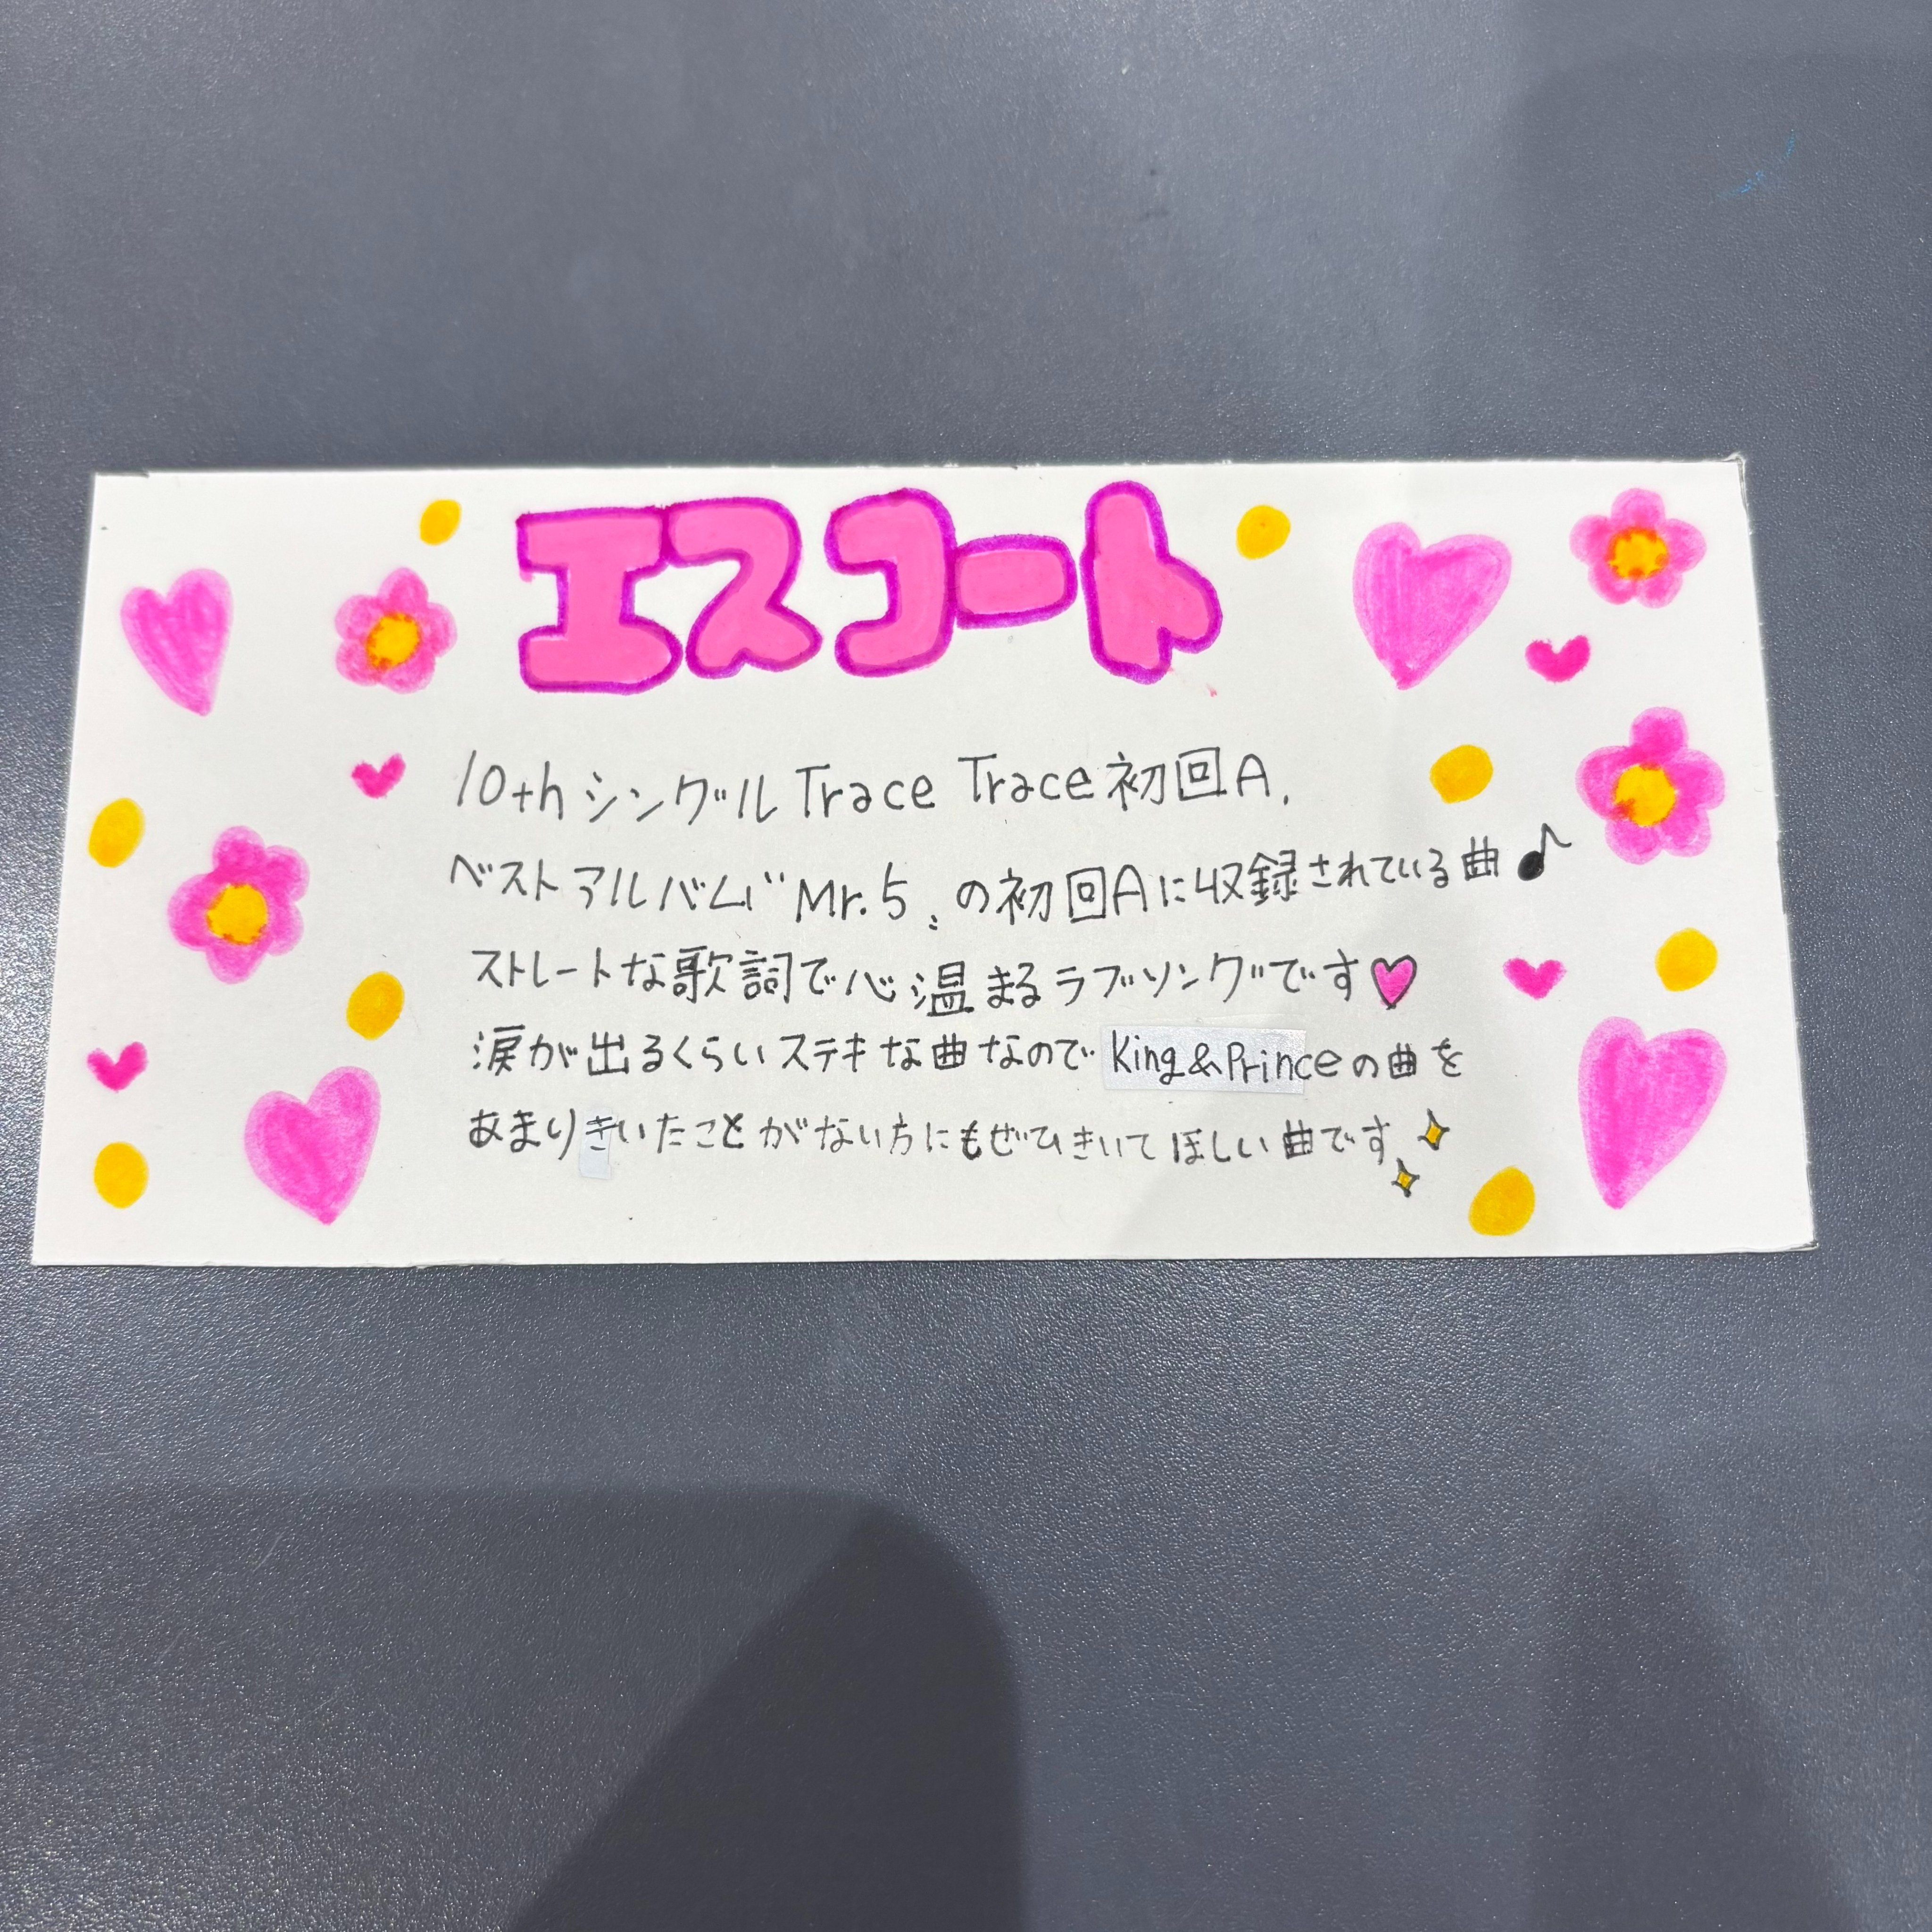 エスコート
10thシングルTrace Trace初回A,
ベストアルバム“Mr.5„の初回Aに収録されている曲♪
ストレートな歌詞で心温まるラブソングです♥
涙が出るくらいステキな曲なのでKing&Princeの曲を
あまりきいたことがない方にもぜひきいてほしい曲です